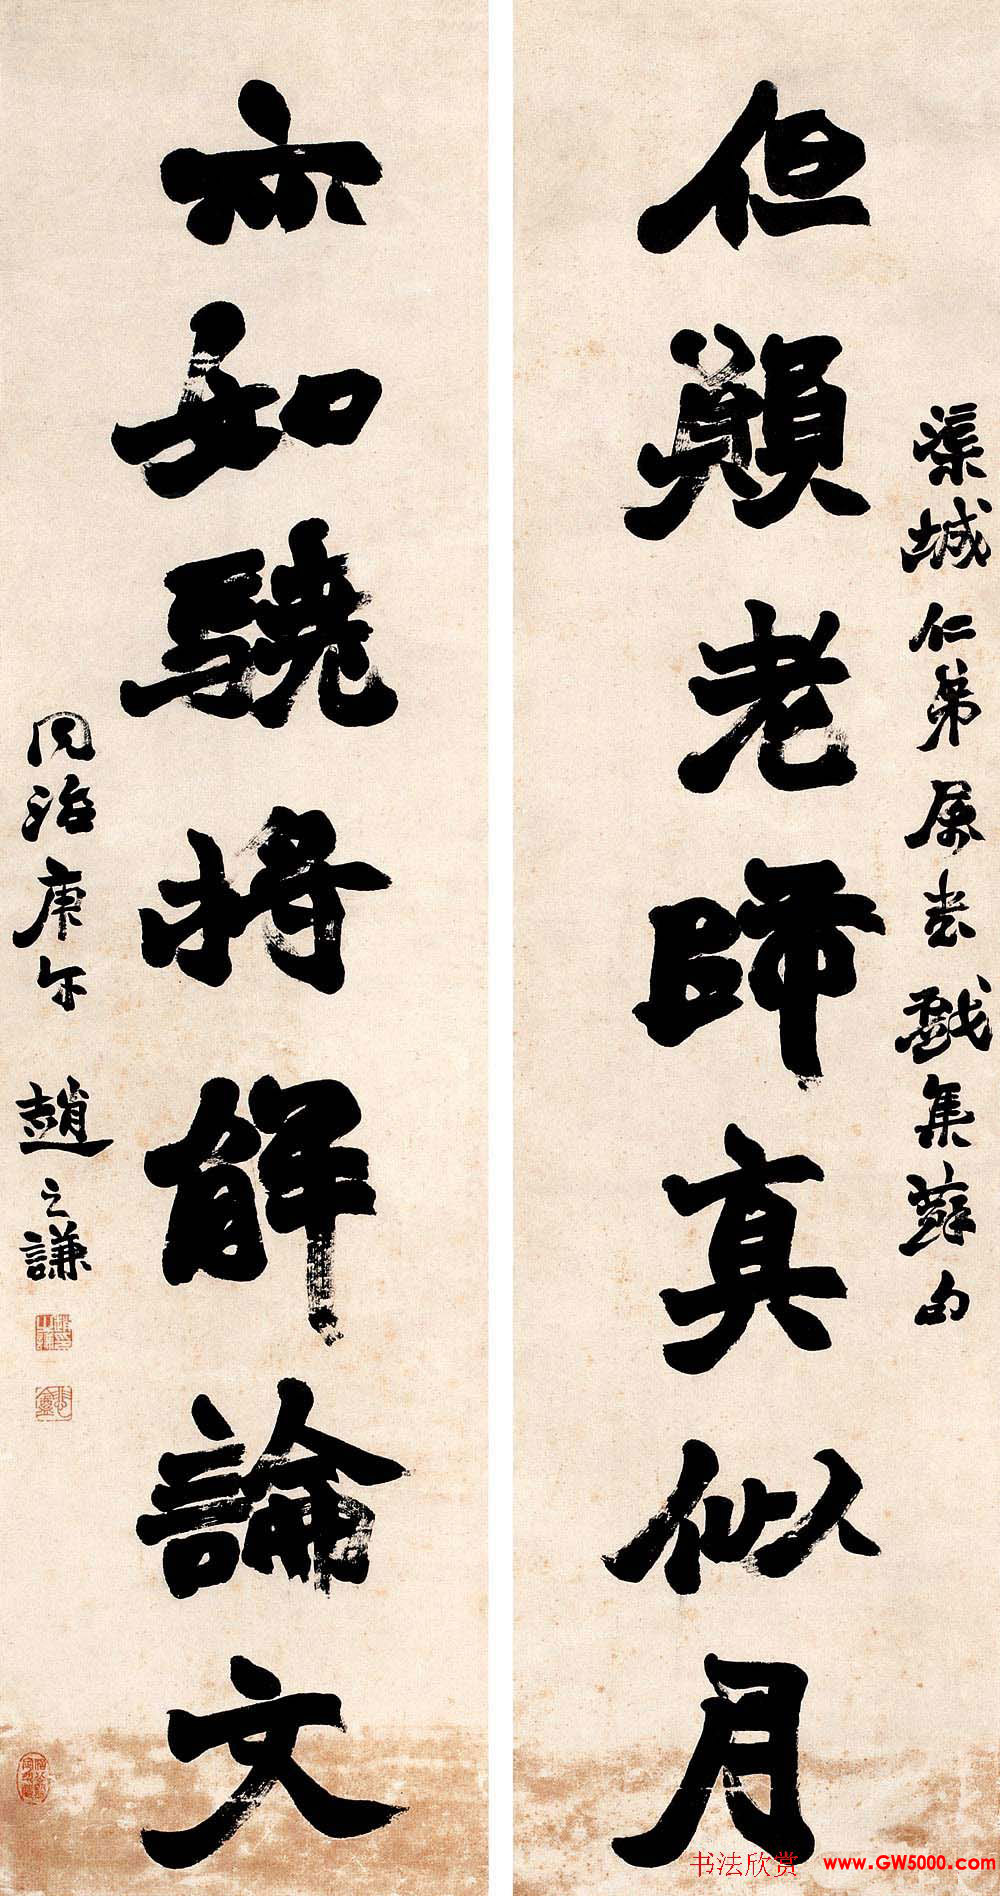 渠城仁弟属书戲集蘇句
但願老師真似月
亦知驍將解論文
同治庚午 趙之謙
书法欣赏 www.GW5000.com